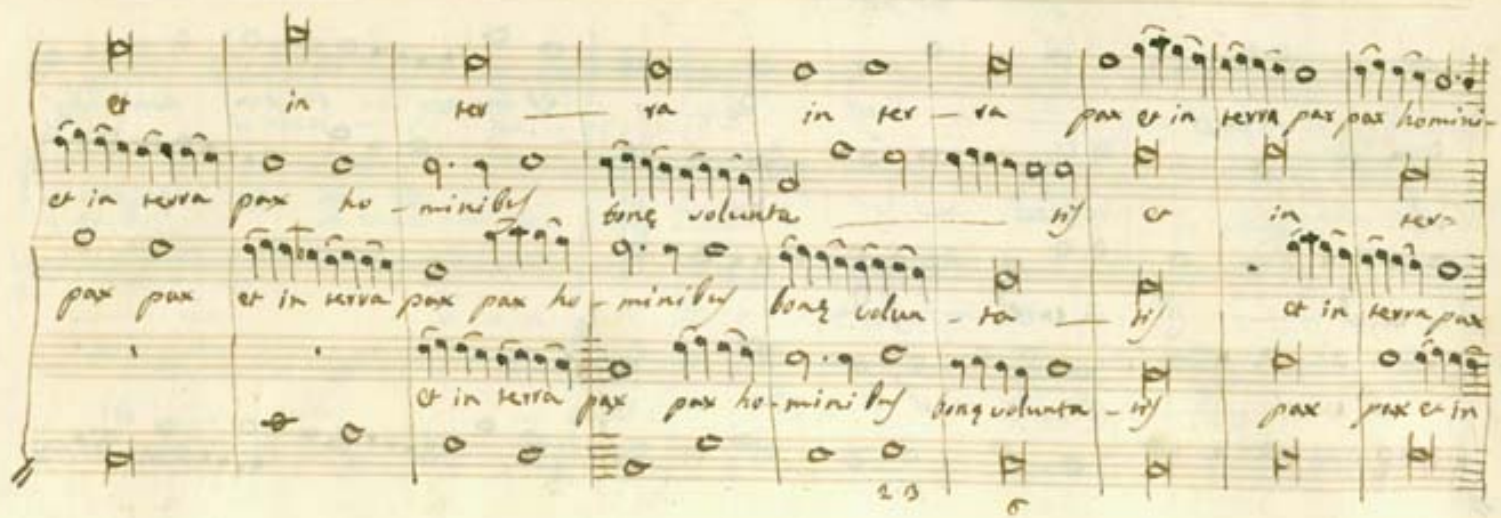 et in ter – ra in ter – ra pax et in terra pax pax homini-
et in terra pax ho – minibus bonę volunta – tis et in ter-
pax pax et in terra pax pax ho – minibus bonę volun – ta – tis et in terra pax
et in terra pax pax ho – minibus bonę volunta – tis pax pax et in
2 3 6